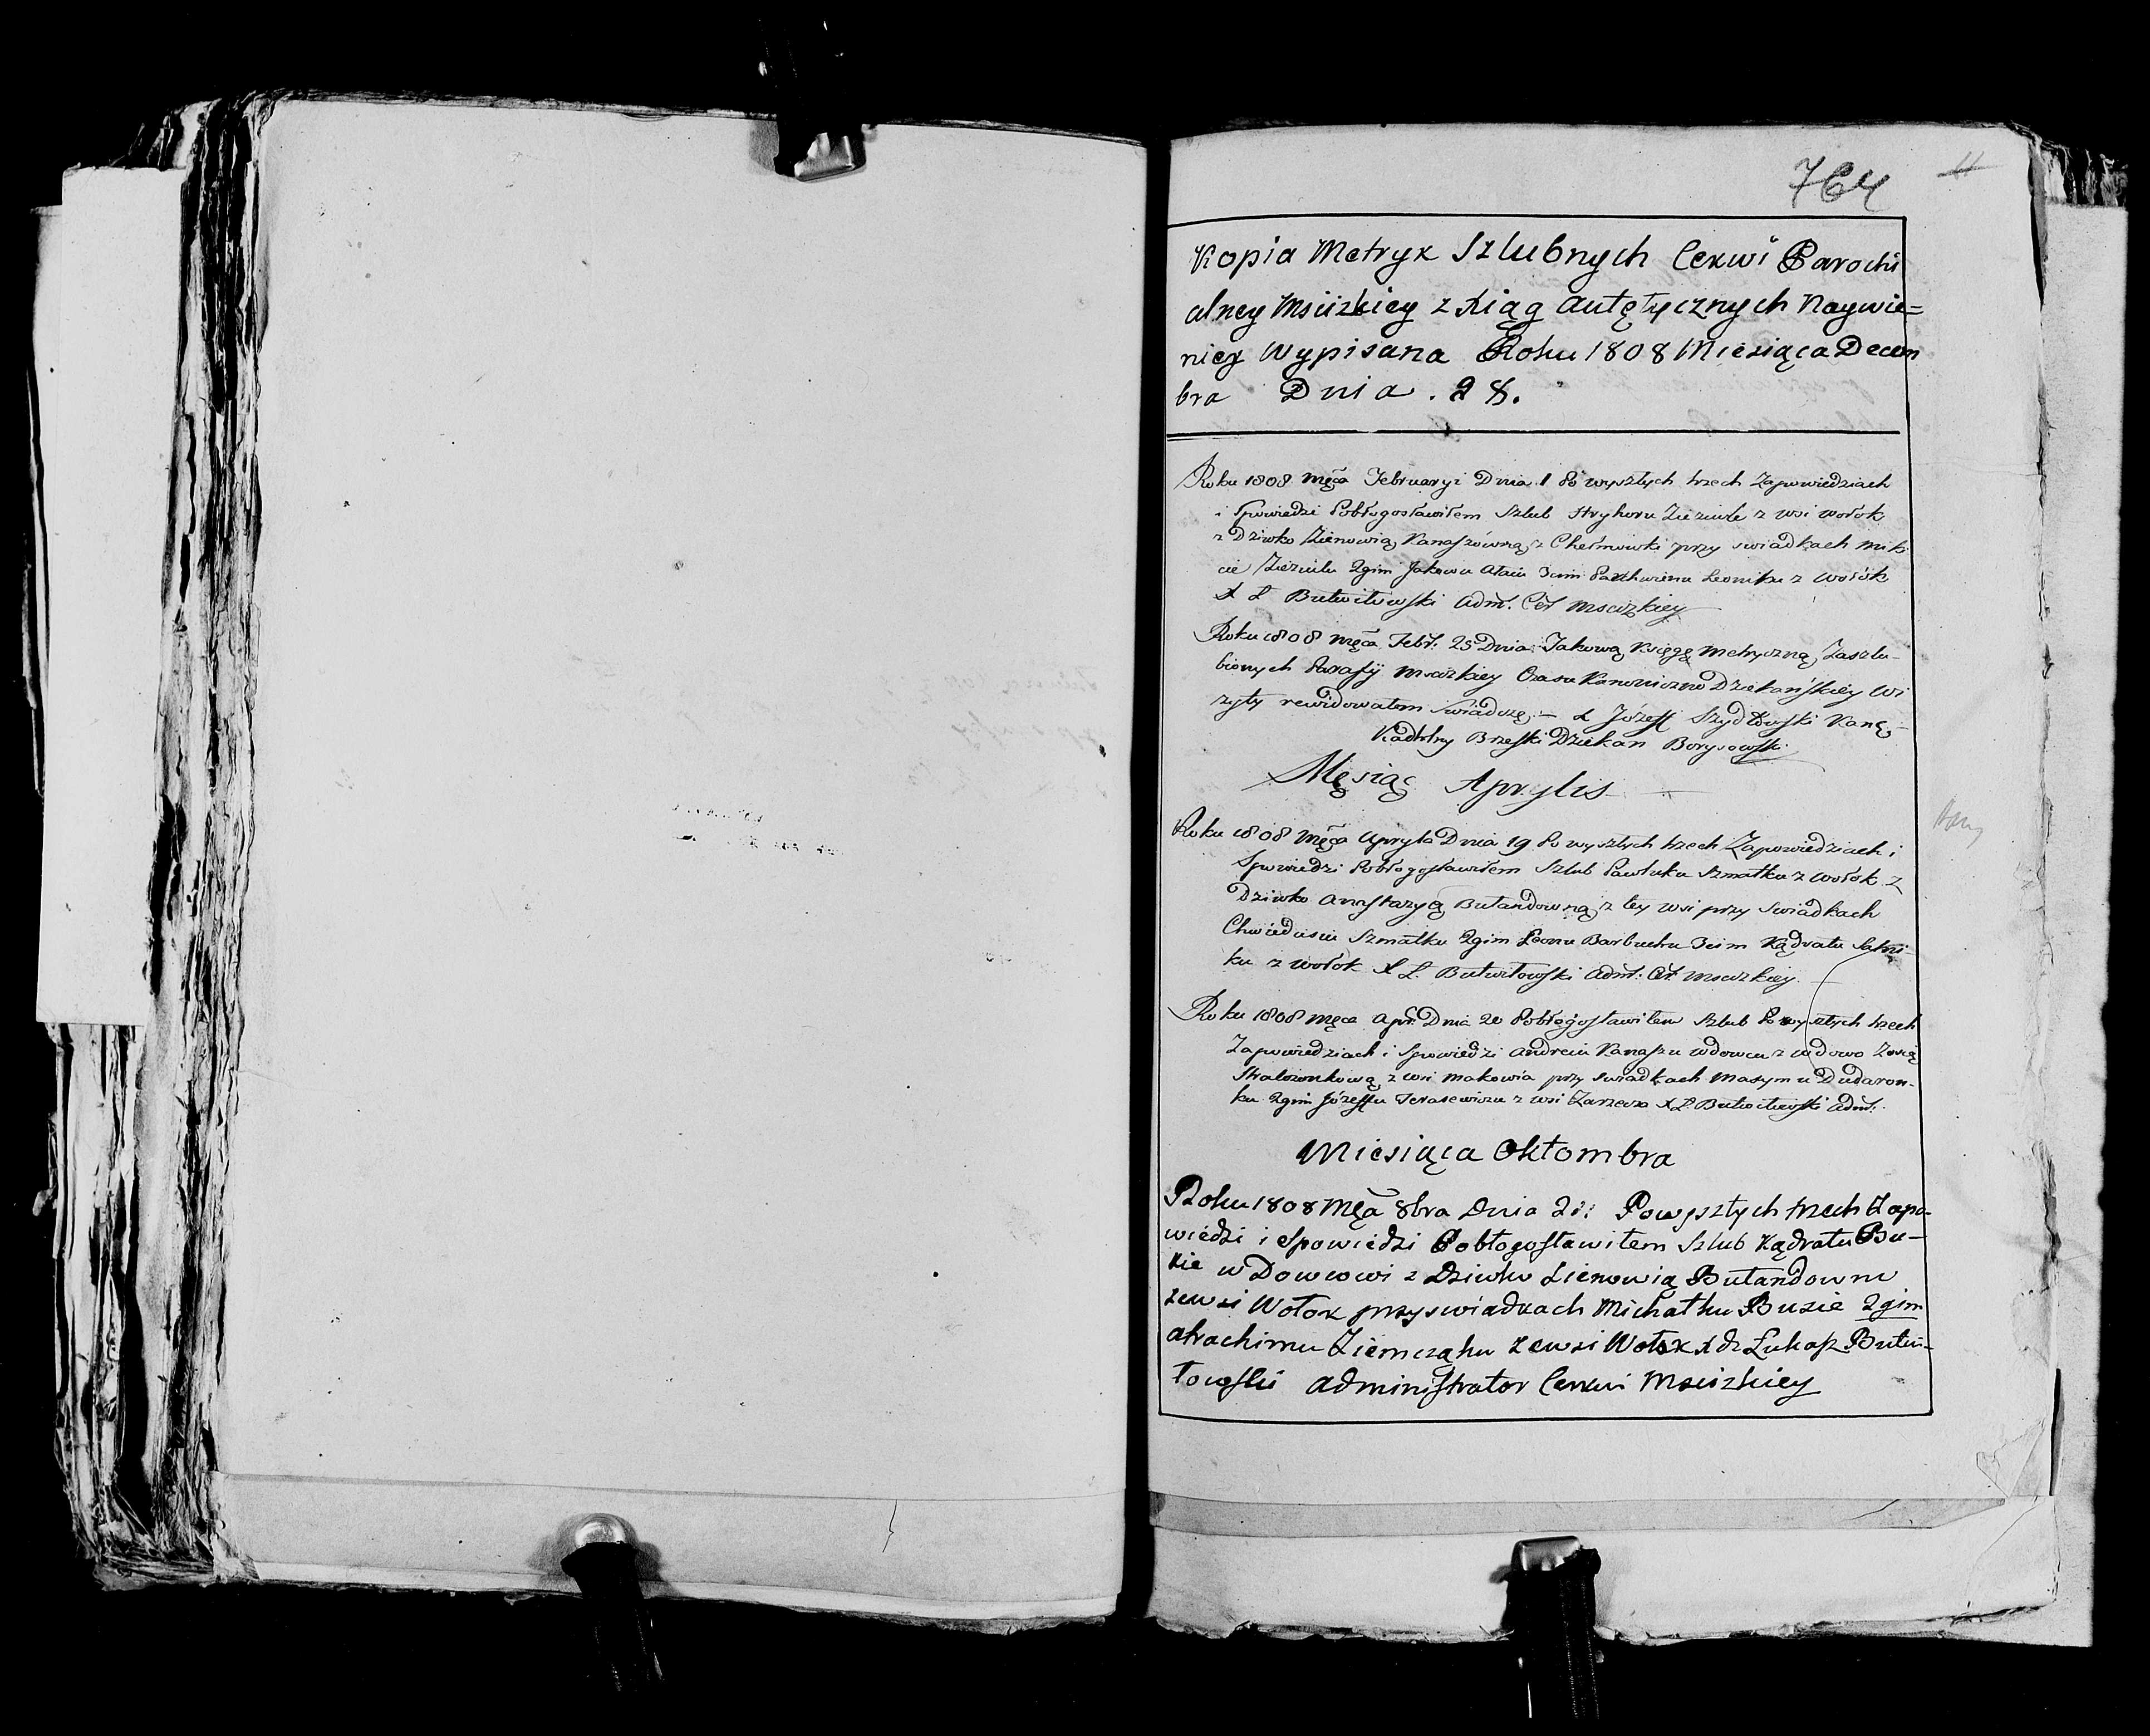 764
11
Kopia Metryk Szlubnych Cerkwi Parochi
alney Msciżkiey z Xiąg autętycznych Naywie=
niey Wypisana Roku 1808 Miesiąca Decem
bra Dnia . 28.
Roku 1808 Męca Februaryi Dnia 1 Po wyszłych trzech Zapowiedziach
i Spowiedzi Pobłogosławiłem Szlub Hryhoru Zieziule z wsi Wołok
z Dziwko Zienowią Kanaszówną z Chełmowki przy swiadkach Mik
cie Zieziulu 2gim Jakowu 3cim Leoniku z Wołok
X Ł Butwiłowski Adm. Cer Msciżkiey
Roku 1808 Męca Febr: 25 Dnia Jakową Xsięgę Metryczną Zaszlu-
bionych Parafij Msciżkiey Czasu Kanoniczno Dziekańskiey Wi
zyty rewidowałem Swiadczę – X Józeff Szydłowski Kanę
Kadtrlny Brzeski Dziekan Borysowski
Męsiąc Aprylis
Roku 1808 Męca Apryla Dnia 19 Po wyszłych trzech Zapowiedziach i
Spowiedzi Pobłogosławiłem Szlub Pawluku Szmatku z Wołok z
Dziwko Anastazyą Butandowną z tey wsi przy Swiadkach
Chwiedasiu Szmatku 2gim Leonu Barbuchu 3cim Kądratu
ku z Wołok X Ł. Butwiłowski Adm: Cer Msciżkiey.
Roku 1808 Męca Apr: Dnia 20 Pobłogosławiłem Szlub Po wyszłych trzech
Zapowiedziach i Spowiedzi Andreiu Kanaszu wdowcu z wdowo Zosią
z wsi Makowia przy swiadkach Masymu Dudaron-
ku 2gim Józeffu Terasewiczu z wsi Zarzecza X Ł. Butwiłowski Adm:
Miesiąca Oktombra
Roku 1808 Męca 8bra Dnia 28: Powyszłych trzech Zapo-
wiedzi i Spowiedzi Pobłogosławiłem Szlub Kądratu Bu-
zie wDowcowi z Dziwku Zienowią Butandownu
zewsi Wołok przyswiadkach Michałku Buzie 2gim
Atrachimu Ziemcząku zewsi Wołok X dz Łukasz Butwi-
łowski Administrator Cerkwi Msciżkiey